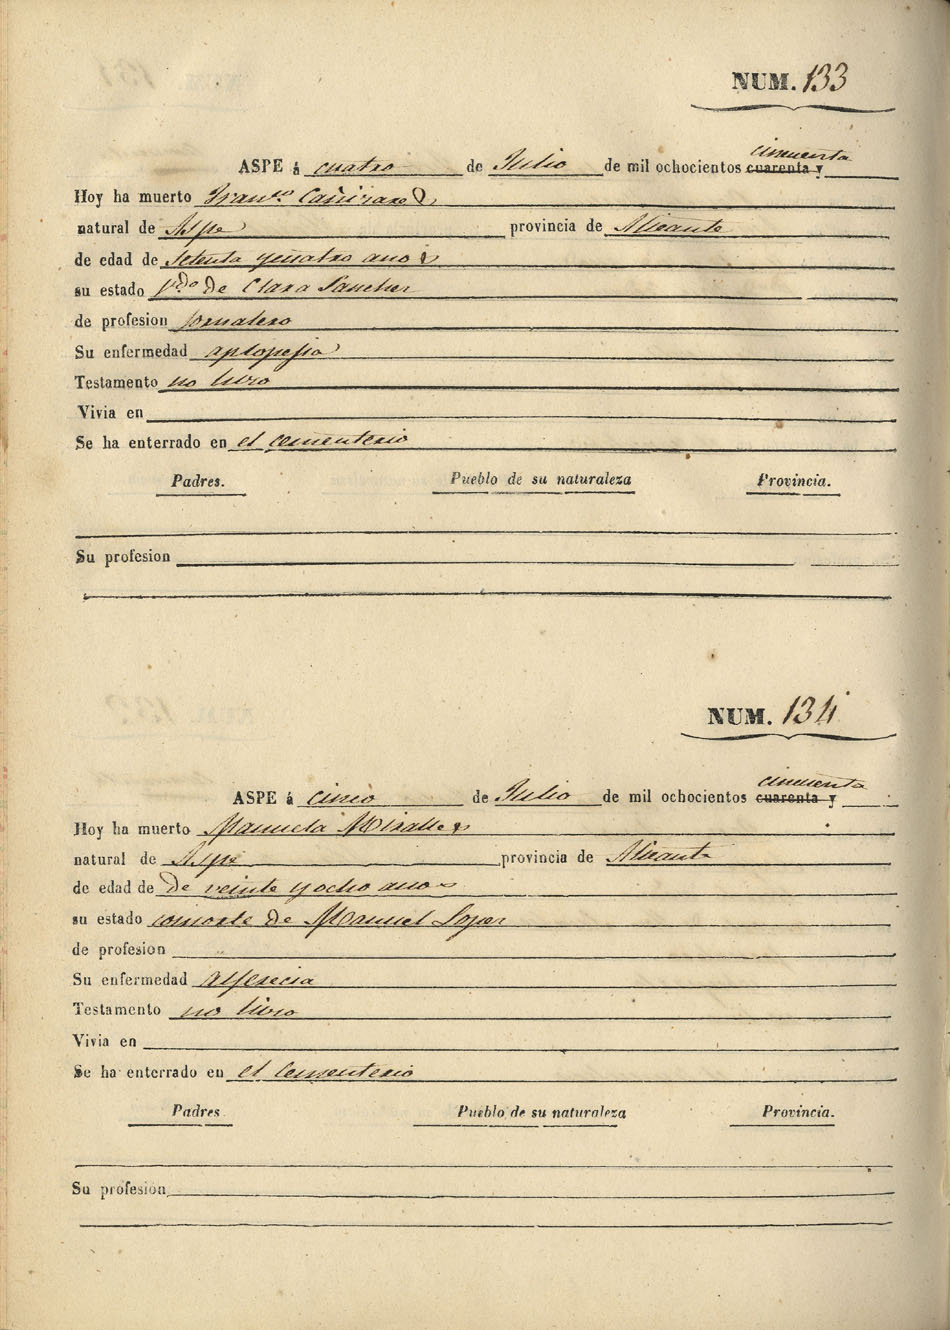 NUM. 133
cincuenta
ASPE á cuatro de Julio de mil ochocientos cuarenta y
Hoy ha muerto Fran.co Cañizares
natural de Aspe provincia de Alicante
de edad de setenta y cuatro años
su estado V.do de Clara Sanchez
de profesion jornalero
Su enfermedad aplopegia
Testamento no hizo
Vivia en
Se ha enterrado en el cementerio
Padres. Pueblo de su naturaleza Provincia.
Su profesion
NUM. 134
cincuenta
ASPE á cinco de Julio de mil ochocientos cuarenta y
Hoy ha muerto Manuela Miralles
natural de Aspe provincia de Alicante
de edad de de veinte y ocho años
su estado consorte de Manuel Lopez
de profesion
Su enfermedad
Testamento no hizo
Vivia en
Se ha enterrado en el Cementerio
Padres. Pueblo de su naturaleza Provincia.
Su profesion